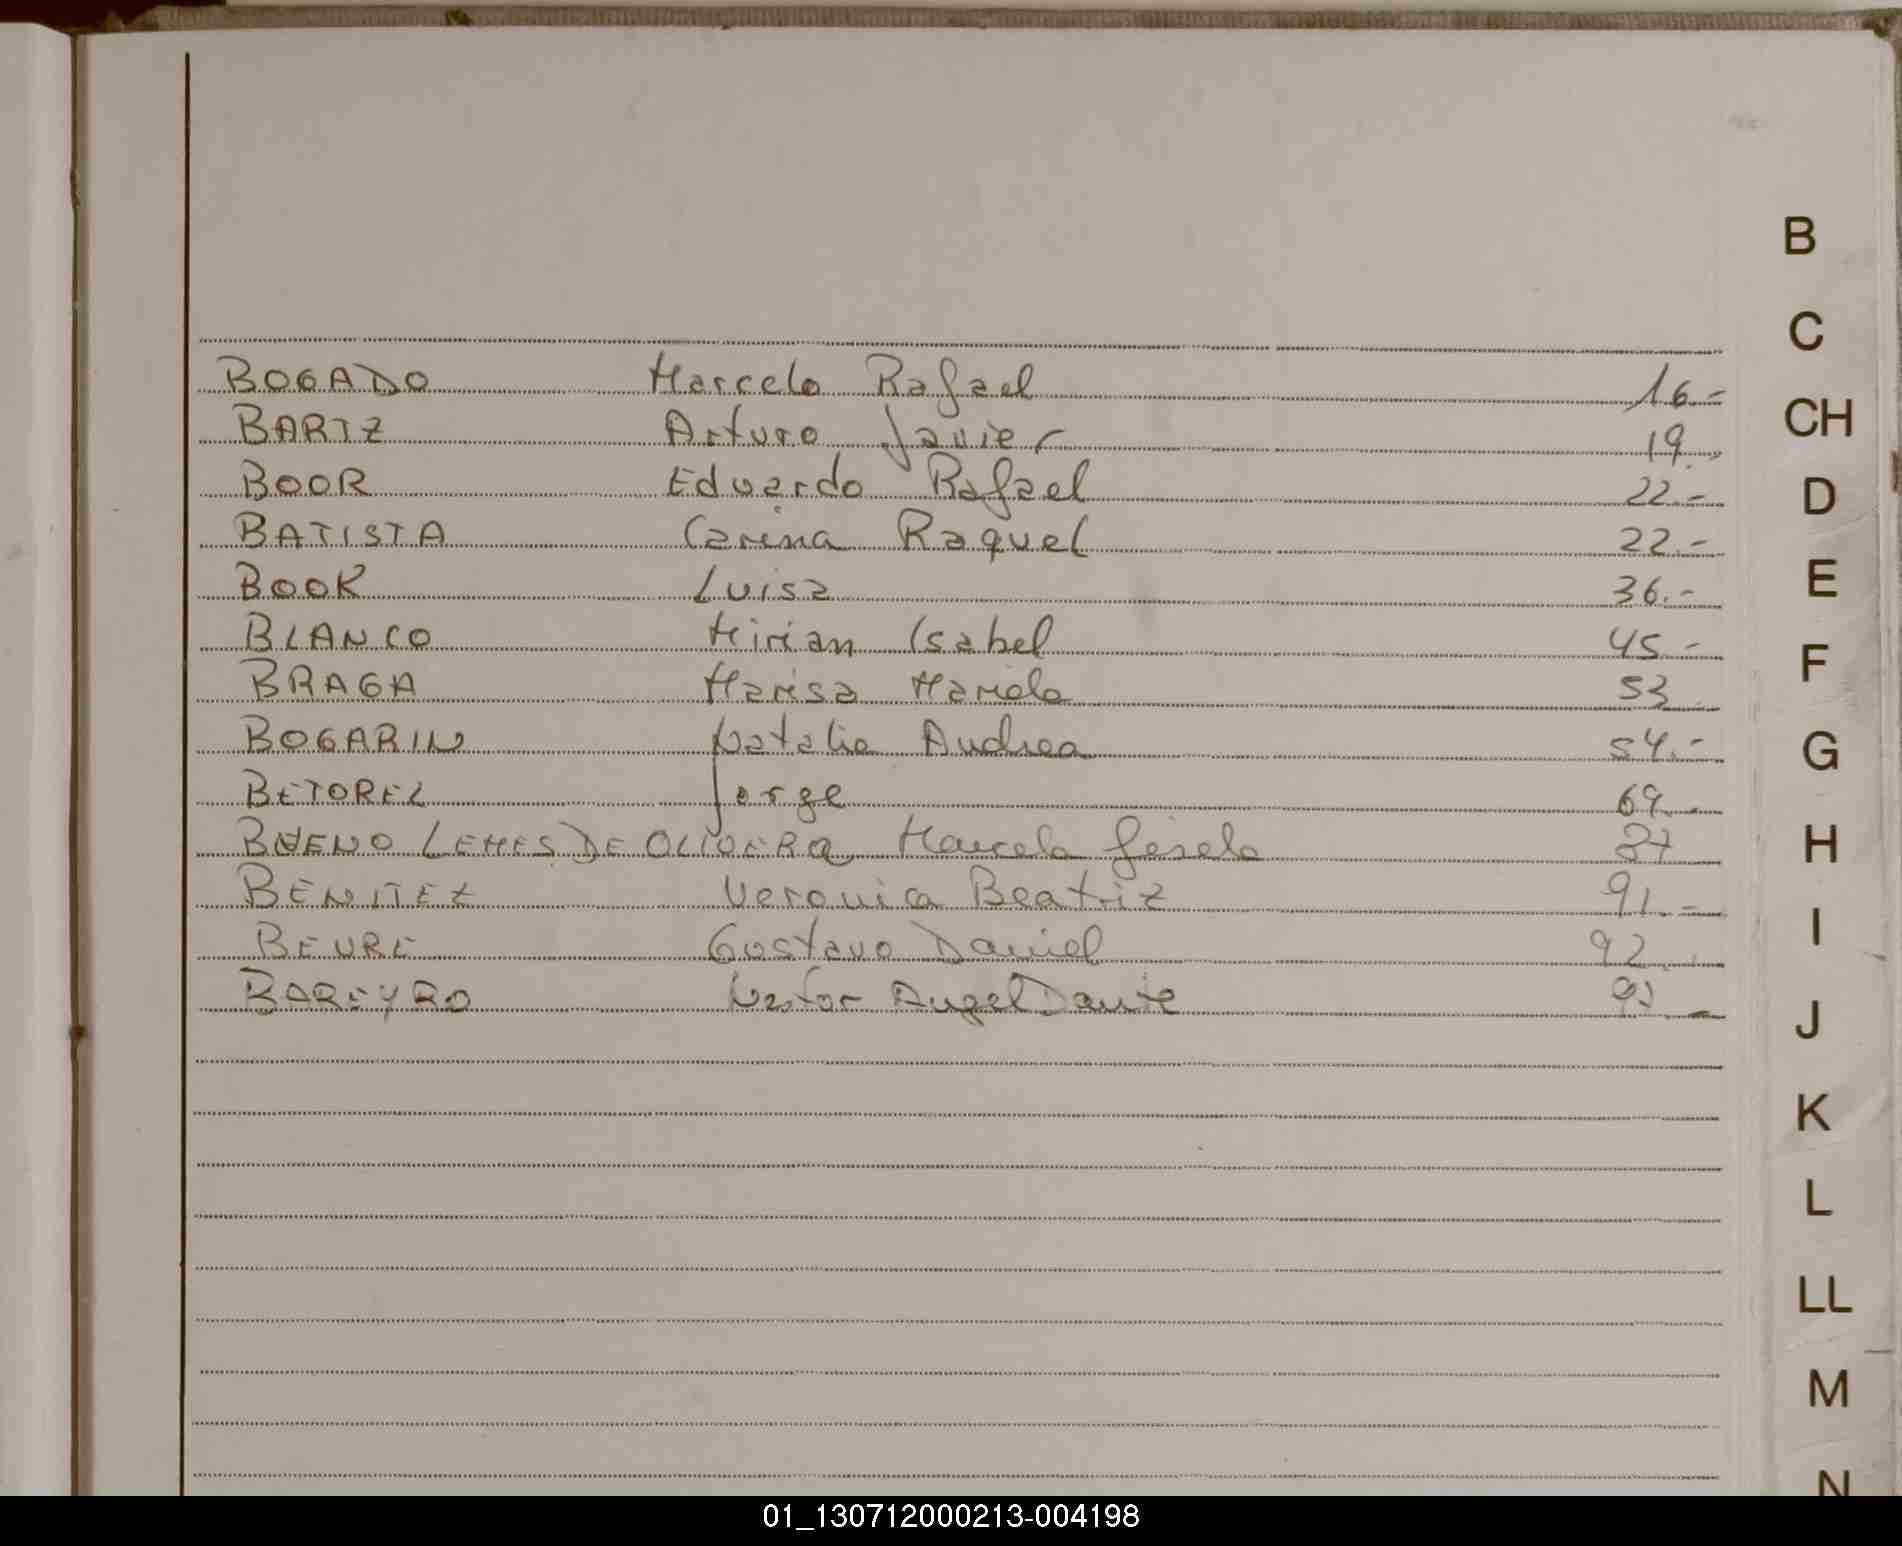 BOGADO Marcelo Rafael 16.-
BARTZ Arturo Javier 19.-
BOOR Eduardo Rafael 22.-
BATISTA Carina Raquel 22.-
BOOK Luisa 36.-
BLANCO Mirian Isabel 45.-
BRAGA Marisa Mariela 53.-
BOGARIN Natalia Andrea 54.-
BETOREL Jorge 69.-
BUENO LEMES DE OLIVERA Marcela Gisela
BENITEZ Veronica Beatriz 91.-
BEURE Gustavo Daniel 92.-
BAREYRO Nestor Angel Dante
B
C
CH
D
E
F
G
H
I
J
K
L
LL
M
N
01_130712000213-004198